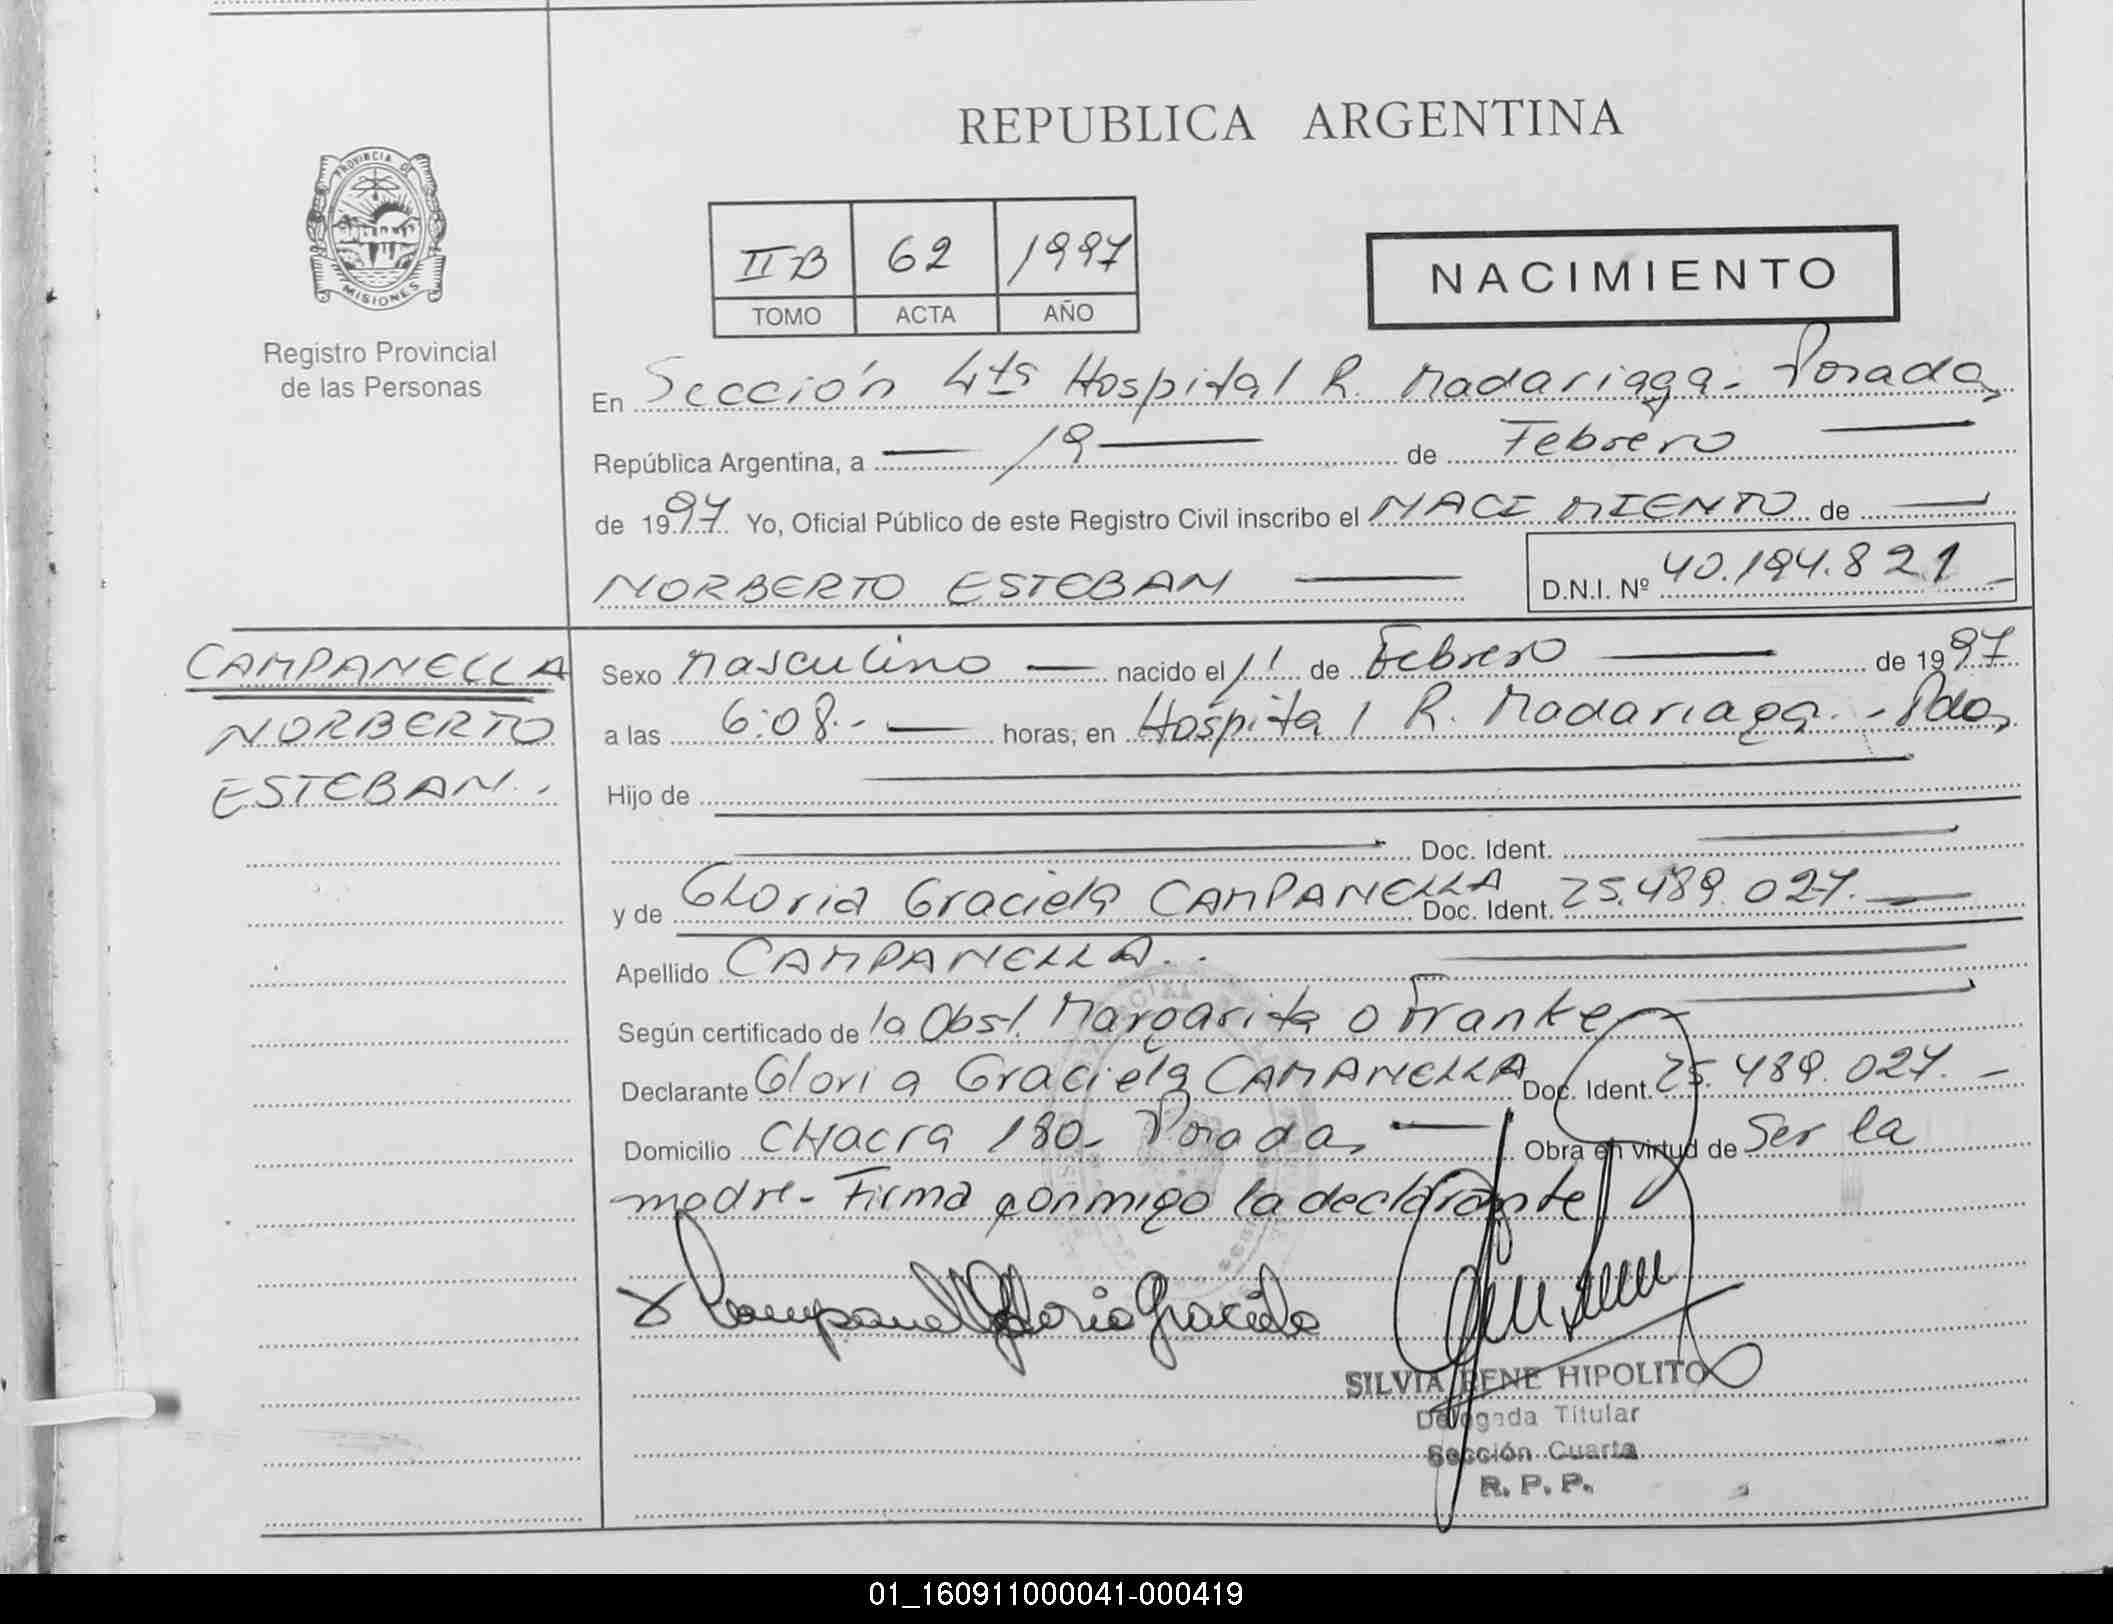 REPUBLICA ARGENTINA
PROVINCIA DE
MISIONES
Registro Provincial
de las Personas
II B 62 1997
TOMO ACTA AÑO
NACIMIENTO
En Sección 4ta Hospital R. Madariaga - Posadas
República Argentina, a 19 de Febrero
de 1997 Yo, Oficial Público de este Registro Civil inscribo el NACIMIENTO de
NORBERTO ESTEBAN D.N.I. Nº 40.194.821
CAMPANELLA
NORBERTO
ESTEBAN.
Sexo Masculino nacido el 11 de Febrero de 1997
a las 6:08.- horas, en Hospital R. Madariaga. - Pdas
Hijo de
Doc. Ident.
y de Gloria Graciela CAMPANELLA Doc. Ident. 25.489.027.
Apellido CAMPANELLA.
Según certificado de la Obst. Margarita O Franke
Declarante Gloria Graciela CAMANELLA Doc. Ident. 25.489.027. -
Domicilio CHacra 180- Posadas Obra en virtud de Ser la
madre- Firma conmigo la declarante
Campanella Gloria Graciela
SILVIA RENE HIPOLITO
Delegada Titular
Sección Cuarta
R. P. P.
01_160911000041-000419